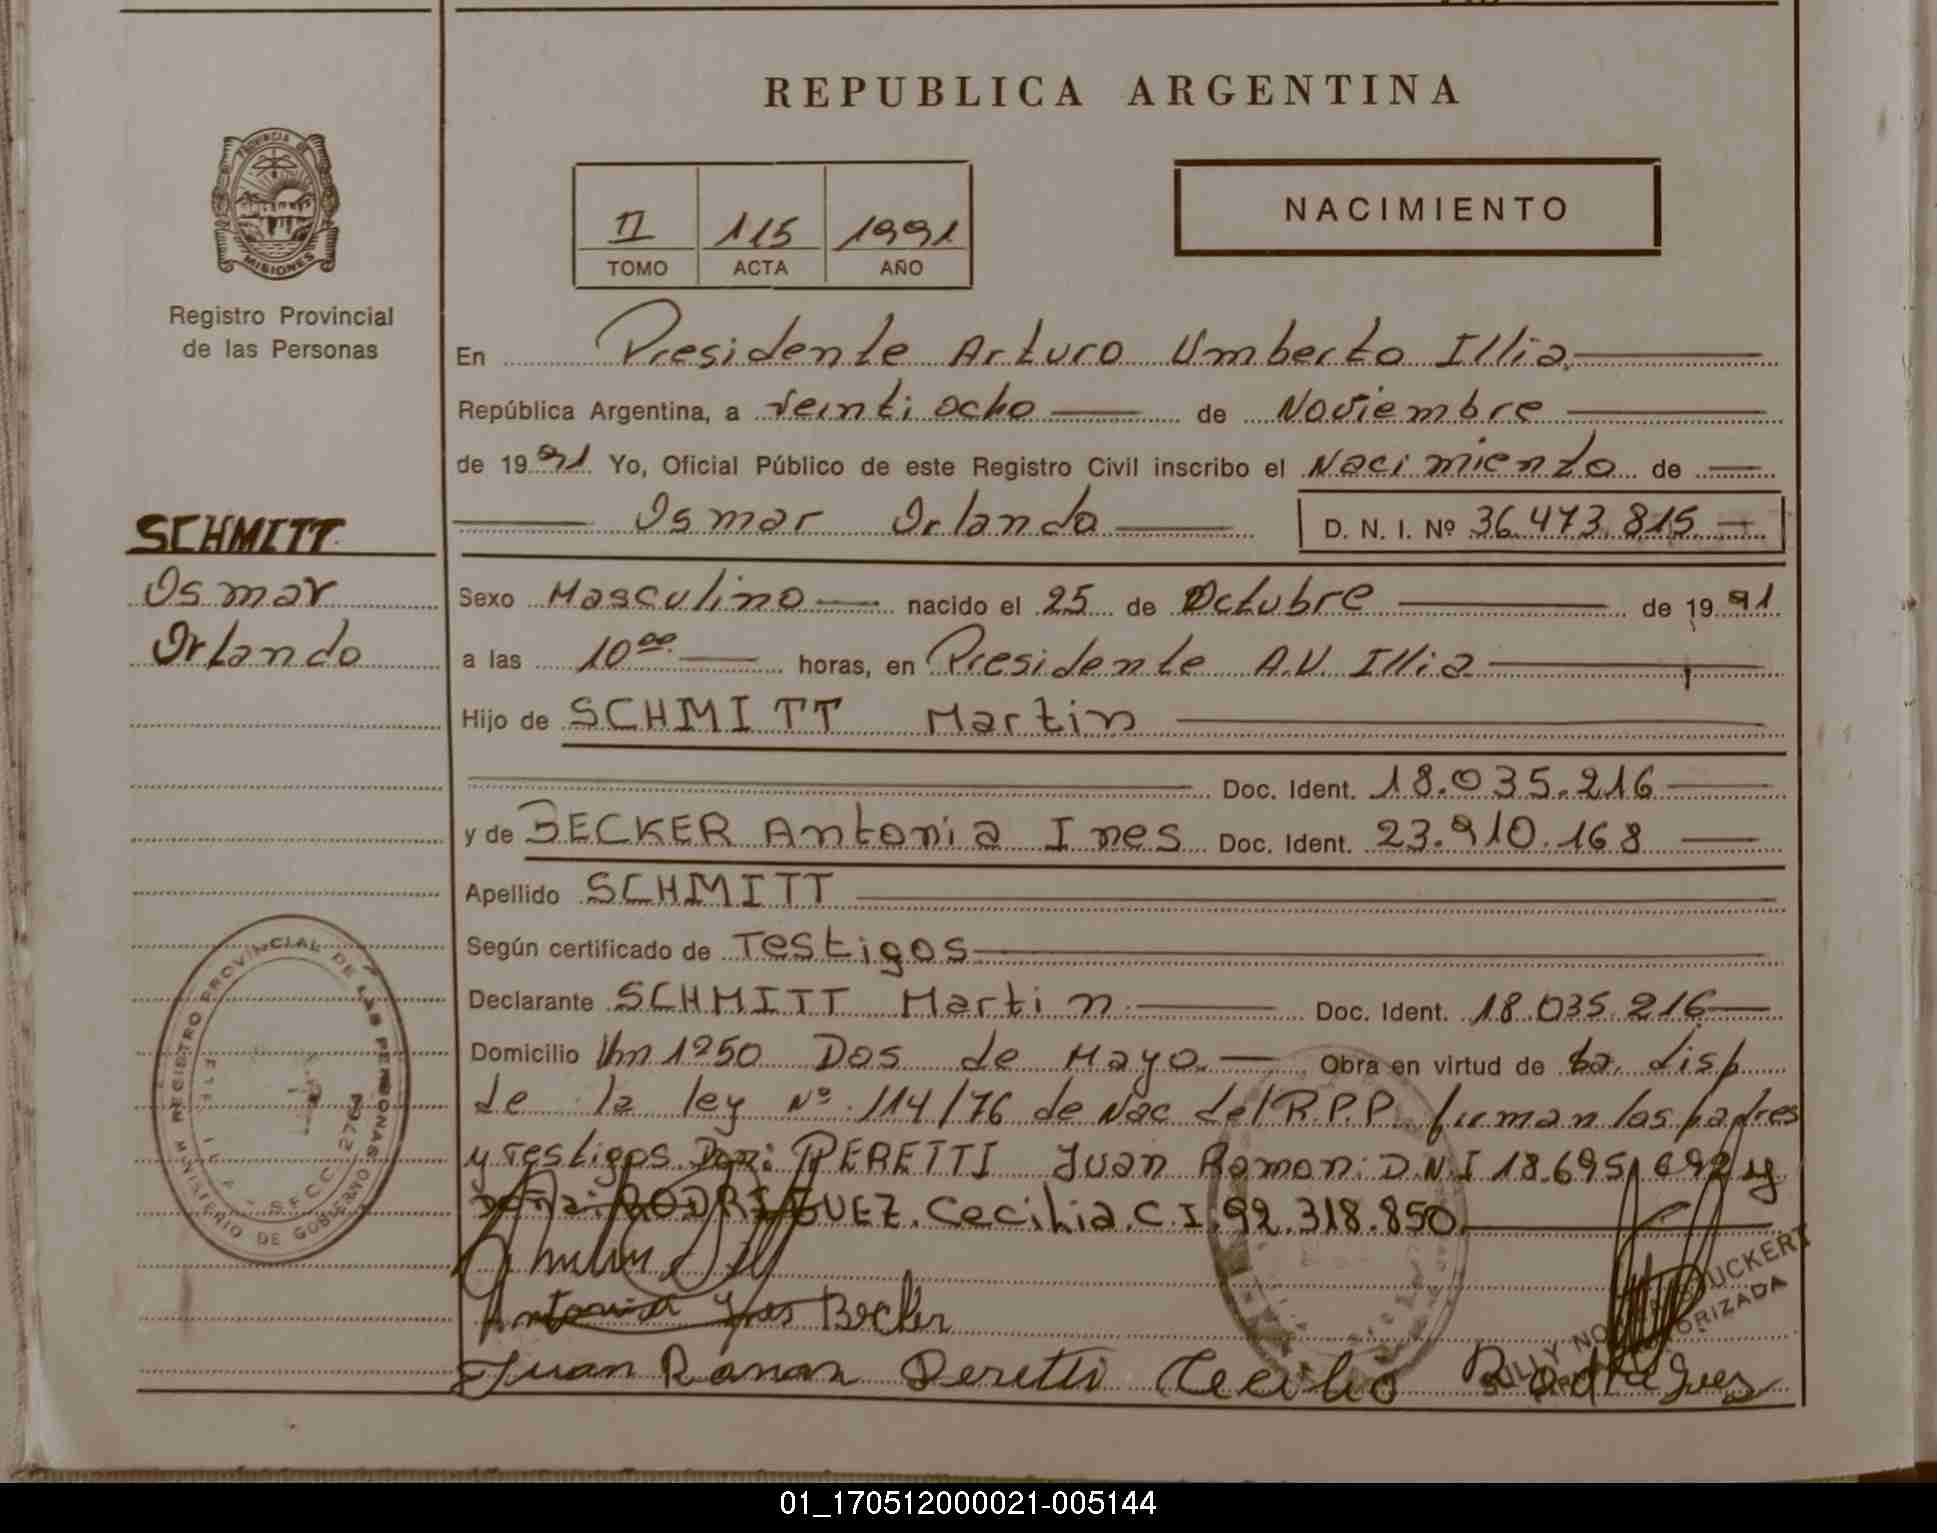 REPUBLICA ARGENTINA
PROVINCIA DE MISIONES
Registro Provincial
de las Personas
II 115 1991
TOMO ACTA AÑO
NACIMIENTO
En Presidente Arturo Umberto Illia.
República Argentina, a veinti ocho de Noviembre
de 1991. Yo, Oficial Público de este Registro Civil inscribo el Nacimiento de
Osmar Orlando D. N. I. Nº 36.473.815
SCHMITT
Osmar
Orlando
Sexo Masculino nacido el 25 de Octubre de 1991
a las 10⁰⁰ horas, en Presidente A.U. Illia
Hijo de SCHMITT Martin
Doc. Ident. 18.035.216
y de BECKER Antonia Ines Doc. Ident. 23.910.168
Apellido SCHMITT
Según certificado de Testigos
Declarante SCHMITT Martin. Doc. Ident. 18.035.216
Domicilio Km 1250 Dos de Mayo. Obra en virtud de la disp
de la ley Nº 114/76 de Nac del R.P.P. firman los padres
y Testigos Don: PERETTI Juan Ramon: D.N.I 18.695.692 y
Doña: RODRIGUEZ. Cecilia. C.I. 92.318.850.
Antonia Ines Becker
Juan Raman Peretti Cecilio Rodriguez
REGISTRO PROVINCIAL DE LAS PERSONAS
MINISTERIO DE GOBIERNO
SECC. 2763
UCKERT
ORIZADA
01_170512000021-005144